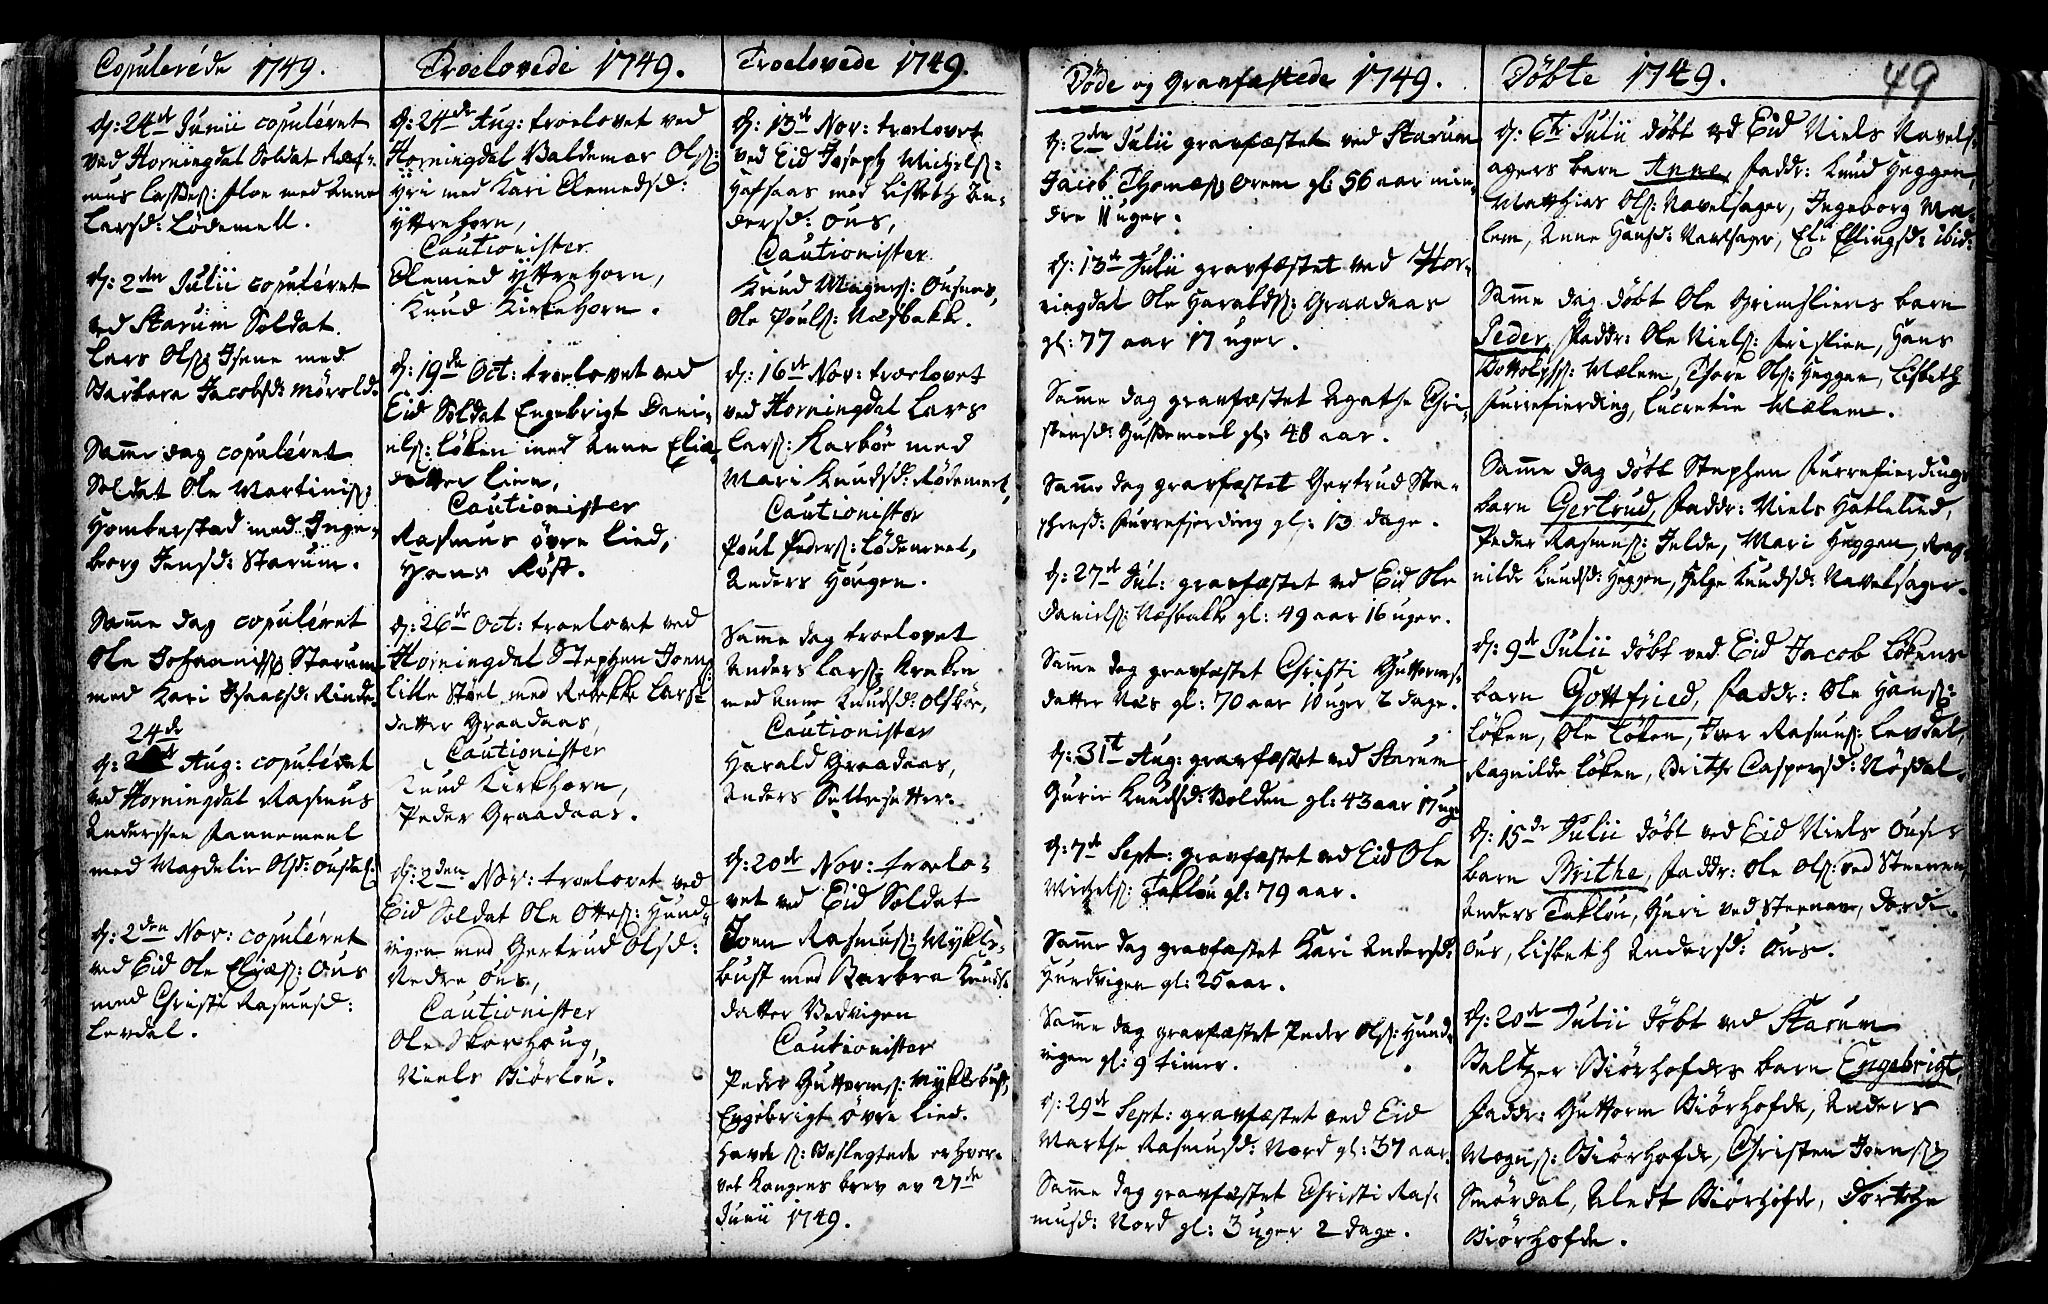 Copulerede 1749.
d: 24de Junii copuléret
ved Horningdal Soldat Ras-
mus Lasses: floe med Anne
Larsd: Lödemell.
d: 2den Julii copuléret
ved Starum Soldat
Lars Ols: Isene med
Barbara Jacobsd: Mörold.
Samme dag copuléret
Soldat Ole Martinis:
Homberstad med Inge-
borg Jensd: Starum.
Samme dag copuléret
Ole Johannis: Starum
med Kari Isaacsd: Rinde.
24de
d: Aug: copuléret
ved Horningdal Rasmus
Anderssen Pannemeel
med Magdelie Olsd:
d: 2den Nov: copuléret
ved Eid Ole Elias: Ous
med Christi Rasmusd:
Levdal.
Troelovede 1749.
d: 24de Aug: troelovet ved
Horningdal Valdemar Ols:
Hri med Kari Clemedsd:
Yttrehorn,
Cautionister
Clemed Yttrehorn,
Knud Kirkehorn.
d: 19de Oct: troelovet ved
Eid Soldat Engebrigt Dani-
els: Löken med Anne Elias
datter Lien,
Cautionister
Rasmus övre Lied,
Hans Röst.
d: 26de Oct: troelovet ved
Horningdal Stephen Joens:
Lille Støel med Rebekke Lars
datter Graadaas,
Cautionister
Knud Kirkhorn,
Peder Graadaas.
d: 2den Nov: troelovet ved
Eid Soldat Ole Ottes: Hund-
vigen med Gertrud Olsd:
Nedre Ous,
Cautionister
Ole Skorhoug,
Niels Biörlou.
Troelovede 1749.
d: 13de Nov: troelovet
ved Eid Joseph Michels:
Hafsaas med Lisbeth An-
dersd: Ous,
Cautionister
Knud Magnes: Ousnes,
Ole Pouls: Næsbakk.
d: 16de Nov: troelovet
ved Horningdal Lars
Lars: Karböe med
Mari Knudsd: Rödemeel,
Cautionister
Poul Peders: Lödemeel,
Anders Hougen.
Samme dag troelovet
Anders Lars: Kraken
med Anne Knudsd: Olsböe,
Cautionister
Harald Graadaas,
Anders Sæltesætter.
d: 20de Nov: troelo-
vet ved Eid Soldat
Joen Rasmus: Mykle-
bust med Barbra Knuds-
datter Vedvigen
Cautionister
Peder Guttorms: Myklebust,
Engebrigt övre Lied.
Havde s: Beslegtede erhver-
vet Kongens brev av 27de
Junii 1749.
Döde og Gravfæstede 1749.
d: 2den Julii gravfæstet ved Starum
Jacob Thomæs: Orem gl: 56 aar min-
dre 11 uger.
d: 13de Julii gravfæstet ved Hor-
ningdal Ole Haralds: Graadaas
gl: 77 aar 17 uger.
Samme dag gravfæstet Agathe Chri-
stensd: Hussemeel gl: 48 aar.
Samme dag gravfæstet Gertrud Ste-
phensd: Furrefierding gl: 13 dage.
d: 27de Jul: gravfæstet ved Eid Ole
Daniels: Næsbakk gl: 49 aar 16 uger.
Samme dag gravfæstet Christi Guttorms-
datter Næs gl: 70 aar 10 uger 2 dage.
d: 31te Aug: gravfæstet ved Starum
Gurie Knudsd: Bolden gl: 43 aar 17 uger
d: 7de Sept: gravfæstet ved Eid Ole
Michels: Taklou gl: 79 aar.
Samme dag gravfæstet Kari Andersd:
Hundvigen gl: 25 aar.
Samme dag gravfæstet Peder Ols: Hund-
vigen gl: 9 timer.
d: 29de Sept: gravfæstet ved Eid
Marthe Rasmusd: Nord gl: 37 aar.
Samme dag gravfæstet Christi Ras-
musd: Nord gl: 3 uger 2 dage.
Döbte 1749.
49
d: 6te Julii döbt ved Eid Niels Navels-
agers barn Anne, Faddr: Knud Heggen,
Matthias Ols: Navelsager, Ingeborg Mæ-
lem, Anne Hansd: Navelsager, Eli Ellingsd: ibid:
Samme dag döbt Ole Grimsliens barn
Peder, Faddr: Ole Niels: Frislien, Hans
Mælem, Thore Ols: Heggen, Lisbeth
Furrefierding, Lucretie Mælem.
Samme dag döbt Stephen Furrefierdings
barn Gertrud, Faddr: Niels Hatlelied,
Peder Rasmus: Helde, Mari Heggen, Rag-
nilde Knudsd: Heggen, Helge Knudsd: Navelsager.
d: 9de Julii döbt ved Eid Jacob Lökens
barn Gottfried, Faddr: Ole Hans:
Löken, Ole Löken, Iver Rasmus: Levdal,
Ragnilde Löken, Brithe Caspersd: Nösdal.
d: 15de Julii döbt ved Eid Niels Ouses
barn Brithe, Faddr: Ole Ols: ved Steenen,
Anders Taklou, Guri ved Steenen, Dordi
Ous, Lisbeth Andersd: Ous.
d: 20de Julii döbt ved Starum
Baltzer Biörhofdes barn Engebrigt,
Faddr: Guttorm Biörhofde, Anders
Mogns: Biörhofde, Christen Joens:
Smördal, Aledt Biörhofde, Dorthe
Biörhofde.